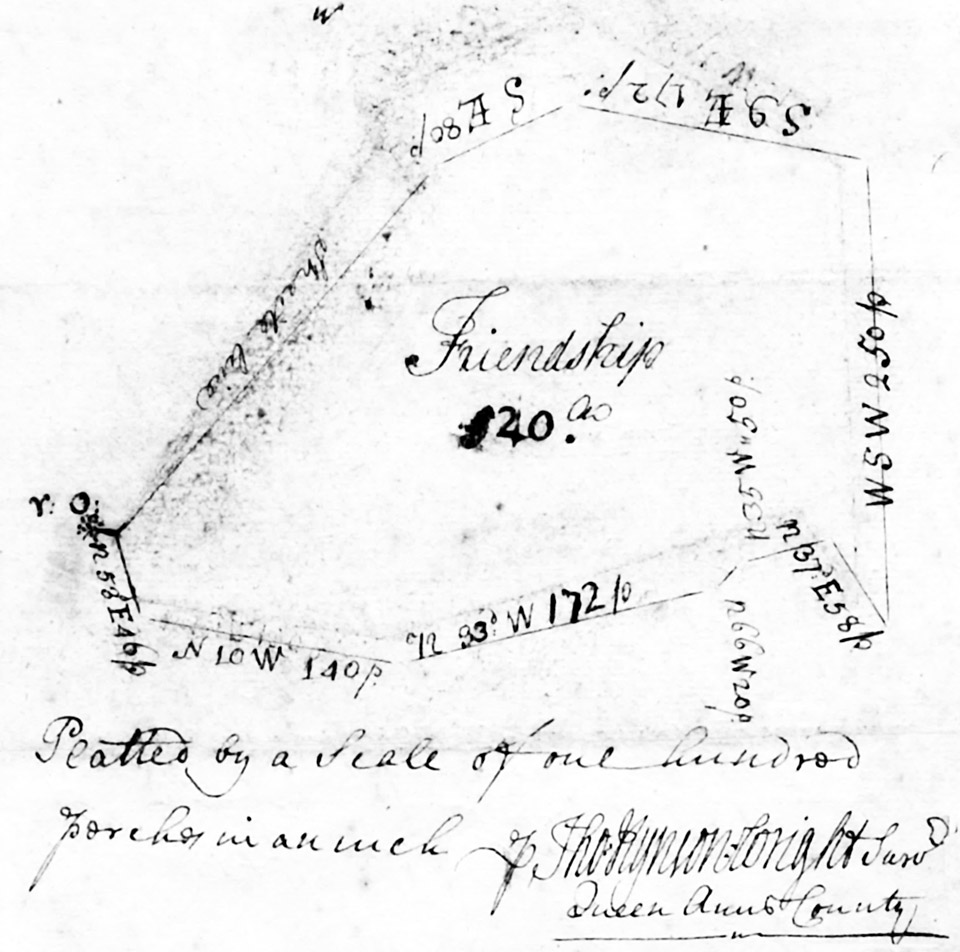 S E 80p
S 9 E 172p.
Streite line
Friendship
120. ac
W S W 250p
N 35 W 50p
n 37° E 58p
r: O:
n 58 E 46p
N 10 W 140p
N 33° W 172p
n 66 W 20p
Platted by a Scale of one hundred
perches in an inch
p Tho: Hynson Wright Survr
Queen Anns County